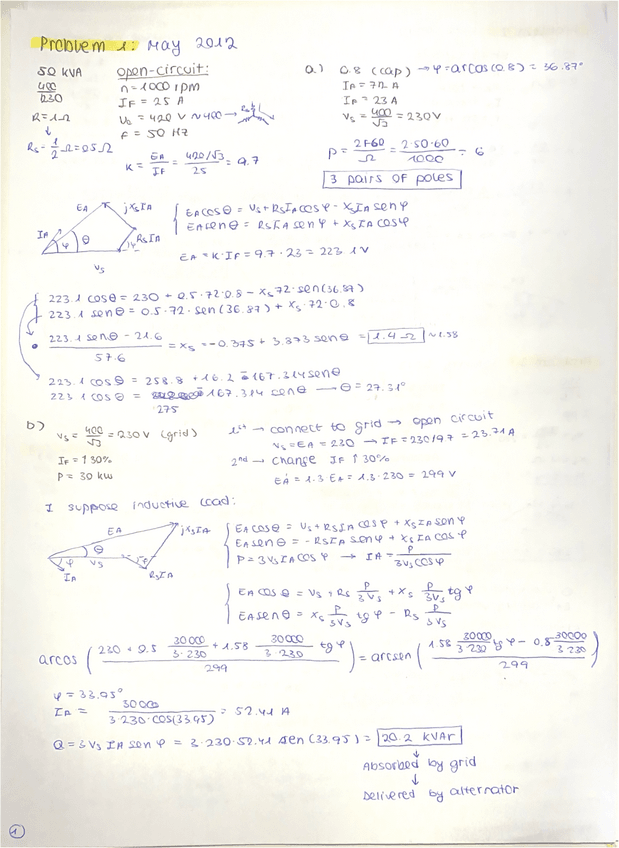 Problem 1: May 2012
50 kVA
400
230
R=1Ω
↓
Rs = 1/2 Ω = 0.5 Ω
open-circuit:
n = 1000 rpm
IF = 25 A
U0 = 420 V ~ 400 →
f = 50 Hz
K = EA/IF = (420/√3)/25 = 9.7
a.) 0.8 (cap) → φ = arcos(0.8) = 36.87°
IA = 72 A
IF = 23 A
Vs = 400/√3 = 230 V
P = 2F60/Ω = 2·50·60/1000 = 6
3 pairs of poles
EA jXsIA
IA φ θ RsIA
Vs
EA cos θ = Vs + RsIA cos φ - XsIA sen φ
EA sen θ = RsIA sen φ + XsIA cos φ
EA = K·IF = 9.7 · 23 = 223.1 V
223.1 cos θ = 230 + 0.5·72·0.8 - Xs 72·sen(36.87)
223.1 sen θ = 0.5·72·sen(36.87) + Xs·72·0.8
(223.1 sen θ - 21.6)/57.6 = Xs = -0.375 + 3.873 sen θ = 1.4 Ω ~1.58
223.1 cos θ = 258.8 + 16.2 - 167.314 sen θ
223.1 cos θ = 275 - 167.314 sen θ → θ = 27.31°
b) Vs = 400/√3 = 230 V (grid)
IF = ↑30%
P = 30 kW
1st → connect to grid → open circuit
Vs = EA = 230 → IF = 230/9.7 = 23.71 A
2nd → change IF ↑30%
EA' = 1.3 EA = 1.3·230 = 299 V
I suppose inductive load:
EA jXsIA
φ θ Vs
IA RsIA
EA cos θ = Vs + RsIA cos φ + XsIA sen φ
EA sen θ = -RsIA sen φ + XsIA cos φ
P = 3VsIA cos φ → IA = P/(3Vs cos φ)
EA cos θ = Vs + Rs P/3Vs + Xs P/3Vs tg φ
EA sen θ = Xs P/3Vs tg φ - Rs P/3Vs
arcos ( (230 + 0.5 30000/3·230 + 1.58 30000/3·230 tg φ)/299 ) = arcsen ( (1.58 30000/3·230 tg φ - 0.5 30000/3·230)/299 )
φ = 33.95°
IA = 30000/(3·230·cos(33.95)) = 52.41 A
Q = 3VsIA sen φ = 3·230·52.41 sen(33.95) = 20.2 kVAr
↓
Absorbed by grid
↓
Delivered by alternator
1